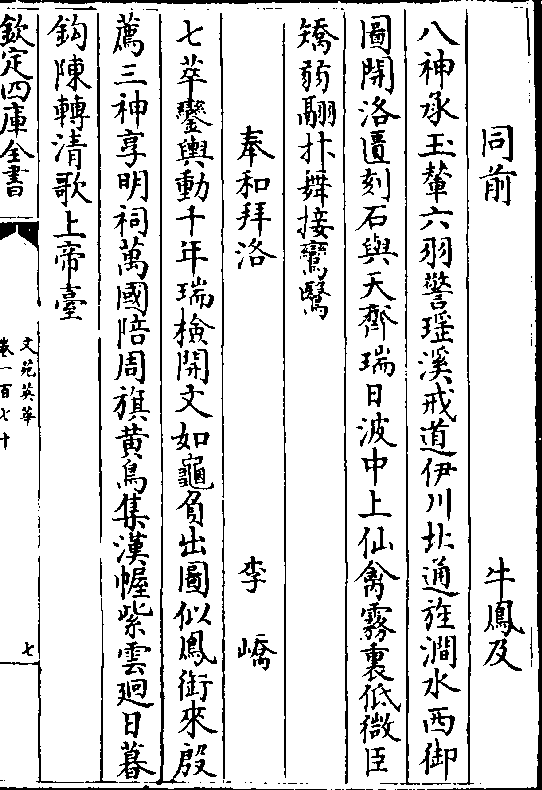 同前　牛鳳及
八神承玉輦六羽警瑶溪戒道伊川北通旌澗水西御
圖開洛匱刻石與天齊瑞日波中上仙禽霧裏低微臣
矯弱翮抃舞接鸞鷖
奉和拜洛　李嶠
七萃鑾輿動千年瑞檢開文如龜負出圖似鳳銜來殷
薦三神享明祠萬國陪周旗黄鳥集漢幄紫雲廻日暮
鈎陳轉清歌上帝臺
欽定四庫全書
文苑英華
卷一百七十
七